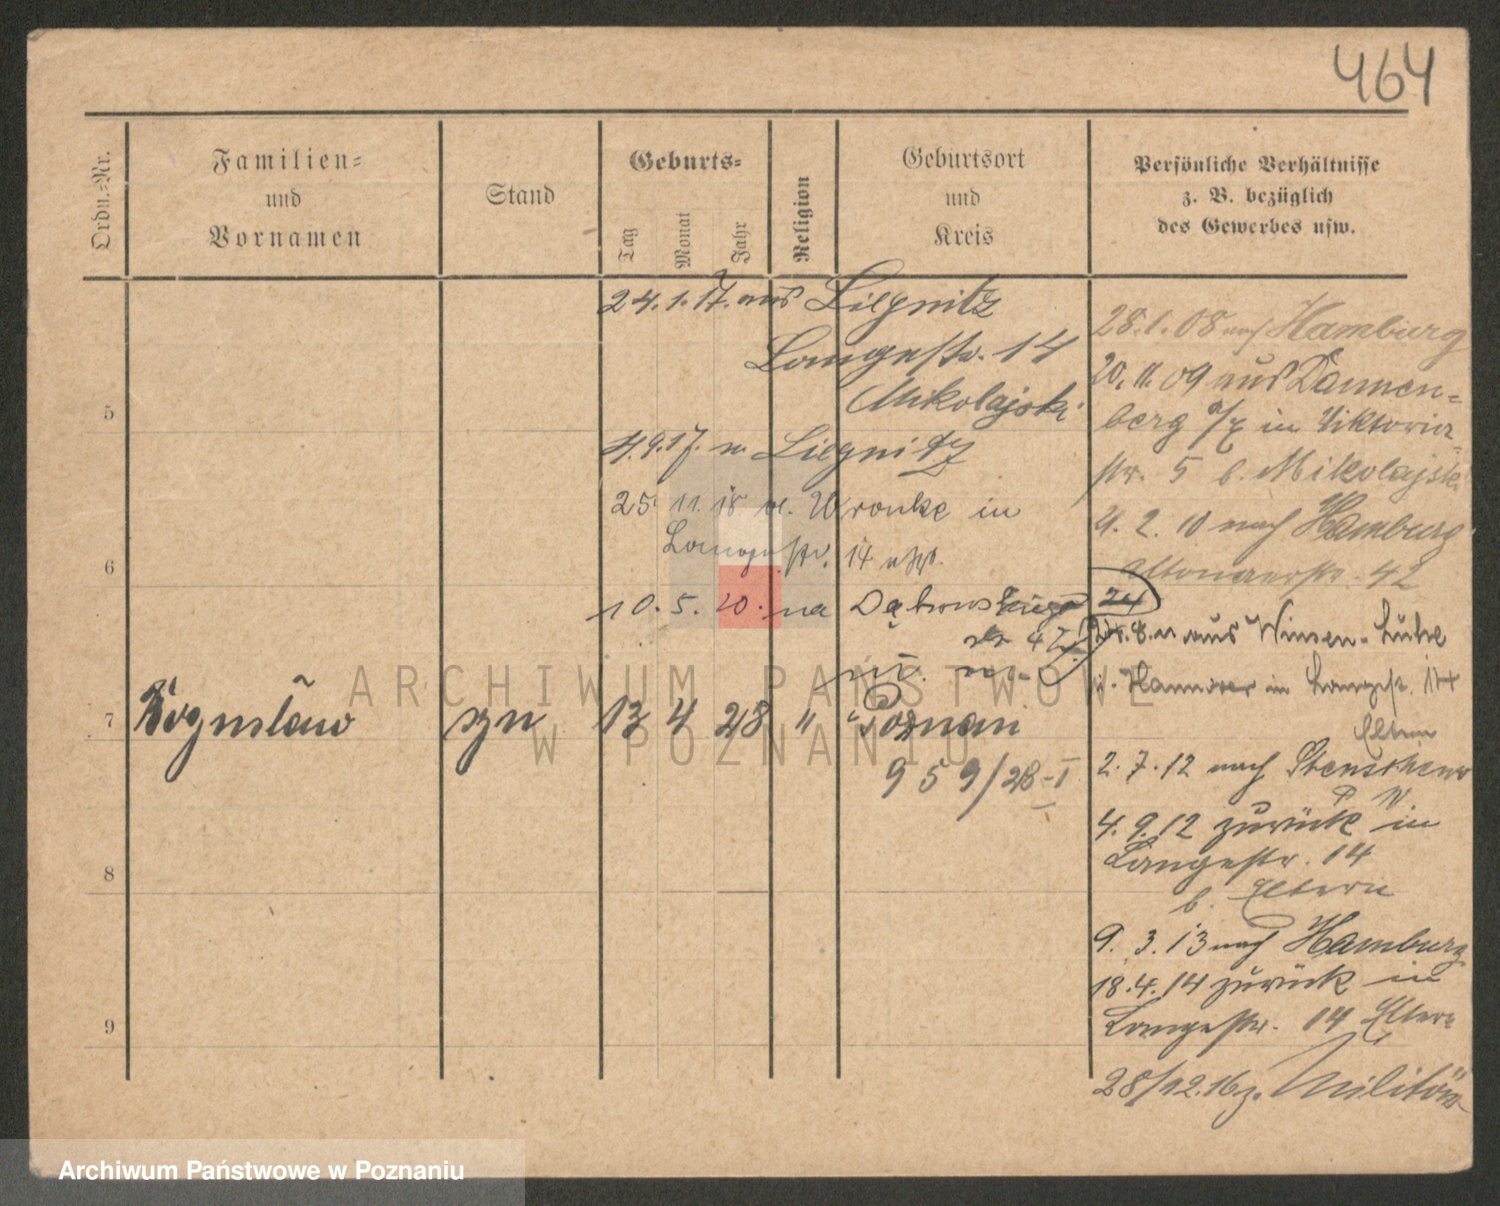 464
Ordn.-Nr.
Familien-
und
Vornamen
Stand
Geburts-
Tag
Monat
Jahr
Religion
Geburtsort
und
Kreis
Persönliche Verhältnisse
z. B. bezüglich
des Gewerbes usw.
24. 1. 17. aus Liegnitz
Langestr. 14
Mikolajski
4. 9. 17. n. Liegnitz
25. 11. 18 v. Wronke in
Langestr. 14
10. 5. 20. na Dąbrowskiego
5
6
7 Bogusław syn 13 4 28 " Poznań
959/28-I
8
9
28. 1. 08 nach Hamburg
20. 11. 09 aus Dannen-
berg a/E in Viktoria-
str. 5 b. Mikolajski
4. 2. 10 nach Hamburg
Altonaerstr. 42
24
aus Winsen-Luhe
Hannover in Langestr. 14
Eltern
2. 7. 12 nach Stenschewo
P W
4. 9. 12 zurück in
Langestr. 14
b. Eltern
9. 3. 13 nach Hamburg
18. 4. 14 zurück in
Langestr. 14 Eltern
28/12. 16 z. Militär
ARCHIWUM PAŃSTWOWE
W POZNANIU
Archiwum Państwowe w Poznaniu